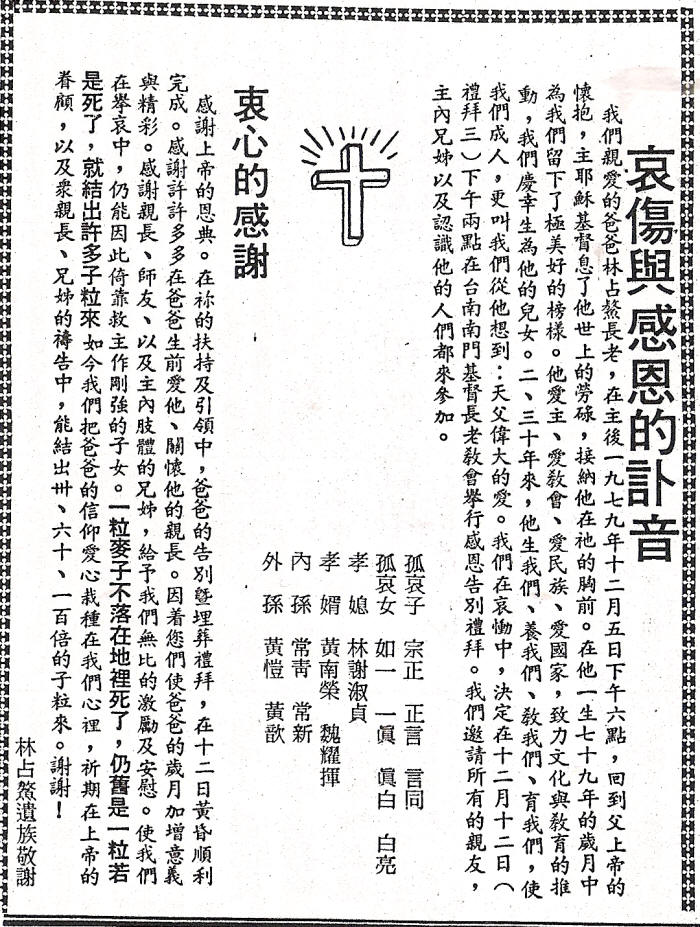 哀傷與感恩的訃音
我們親愛的爸爸林占鰲長老，在主後一九七九年十二月五日下午六點，回到父上帝的
懷抱，主耶穌基督息了他世上的勞碌，接納他在祂的胸前。在他一生七十九年的歲月中
為我們留下了極美好的榜樣。他愛主、愛教會、愛民族、愛國家，致力文化與教育的推
動，我們慶幸生為他的兒女。二、三十年來，他生我們、養我們、教我們、育我們，使
我們成人，更叫我們從他想到：天父偉大的愛。我們在哀慟中，決定在十二月十二日（
禮拜三）下午兩點在台南南門基督長老教會舉行感恩告別禮拜。我們邀請所有的親友，
主內兄姊以及認識他的人們都來參加。
孤哀子　宗正　正言　言同
孤哀女　如一　一眞　眞白　白亮
孝　媳　林謝淑貞
孝　婿　黃南榮　魏耀揮
內　孫　常靑　常新
外　孫　黃愷　黃歆
衷心的感謝
感謝上帝的恩典。在祢的扶持及引領中，爸爸的告別暨埋葬禮拜，在十二日黃昏順利
完成。感謝許許多多在爸爸生前愛他、關懷他的親長。因着您們使爸爸的歲月加增意義
與精彩。感謝親長、師友、以及主內肢體的兄姊，給予我們無比的激勵及安慰。使我們
在舉哀中，仍能因此倚靠救主作剛強的子女。一粒麥子不落在地裡死了，仍舊是一粒若
是死了，就結出許多子粒來　如今我們把爸爸的信仰愛心栽種在我們心裡，祈期在上帝的
眷顧，以及衆親長、兄姊的禱告中，能結出卅、六十、一百倍的子粒來。謝謝！
林占鰲遺族敬謝